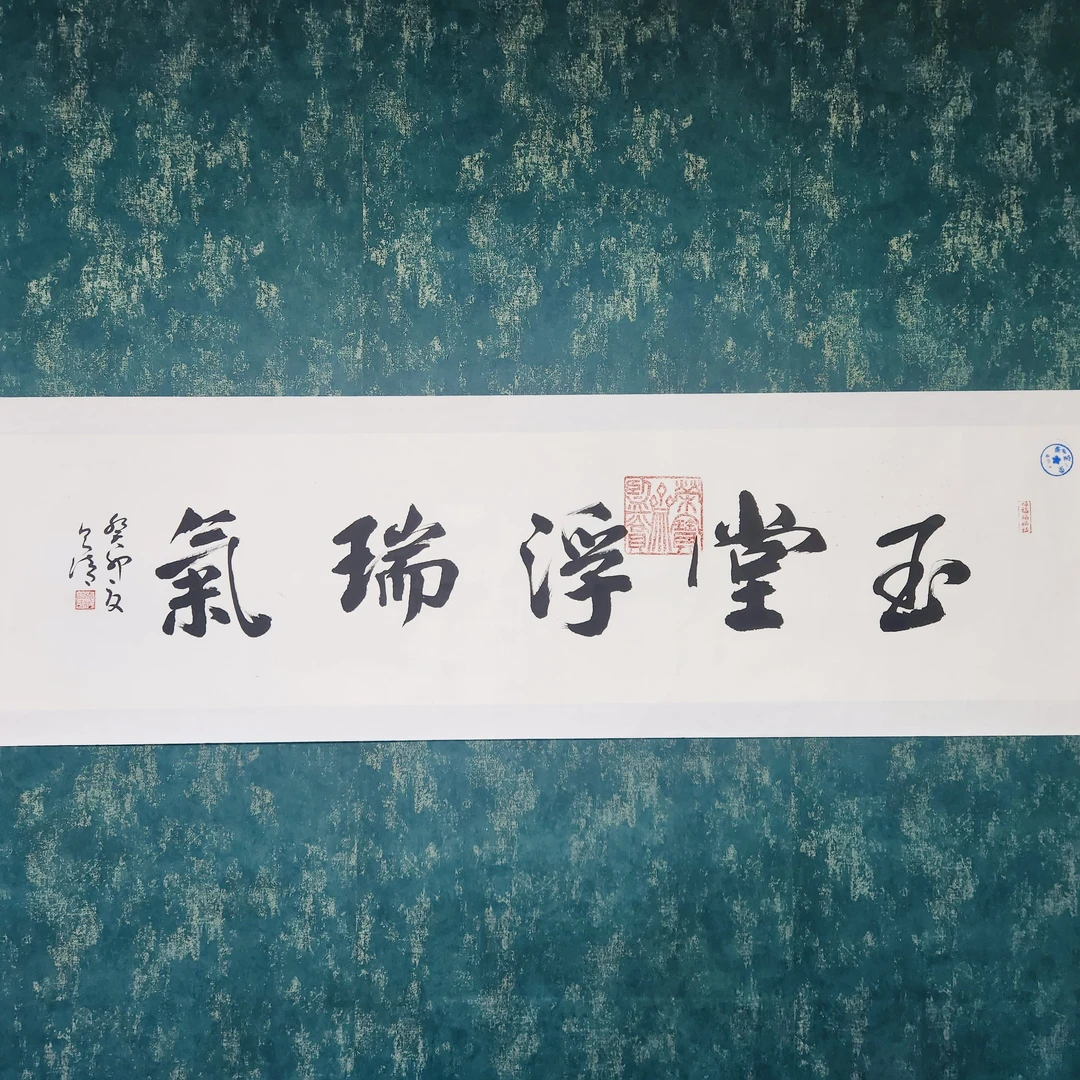 玉堂浮瑞氣
癸卯夏